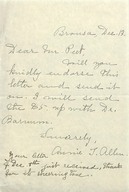 Bronxa, Dec. 18.
Dear Mr Peet,
Will you
kindly endorse this
letter and send it
on. I will send
the up with Dr.
Barnum.
Sincerely,
Annie T. Allen
Your letter
of Dec 8th just received, thanks
for its cheering tone.